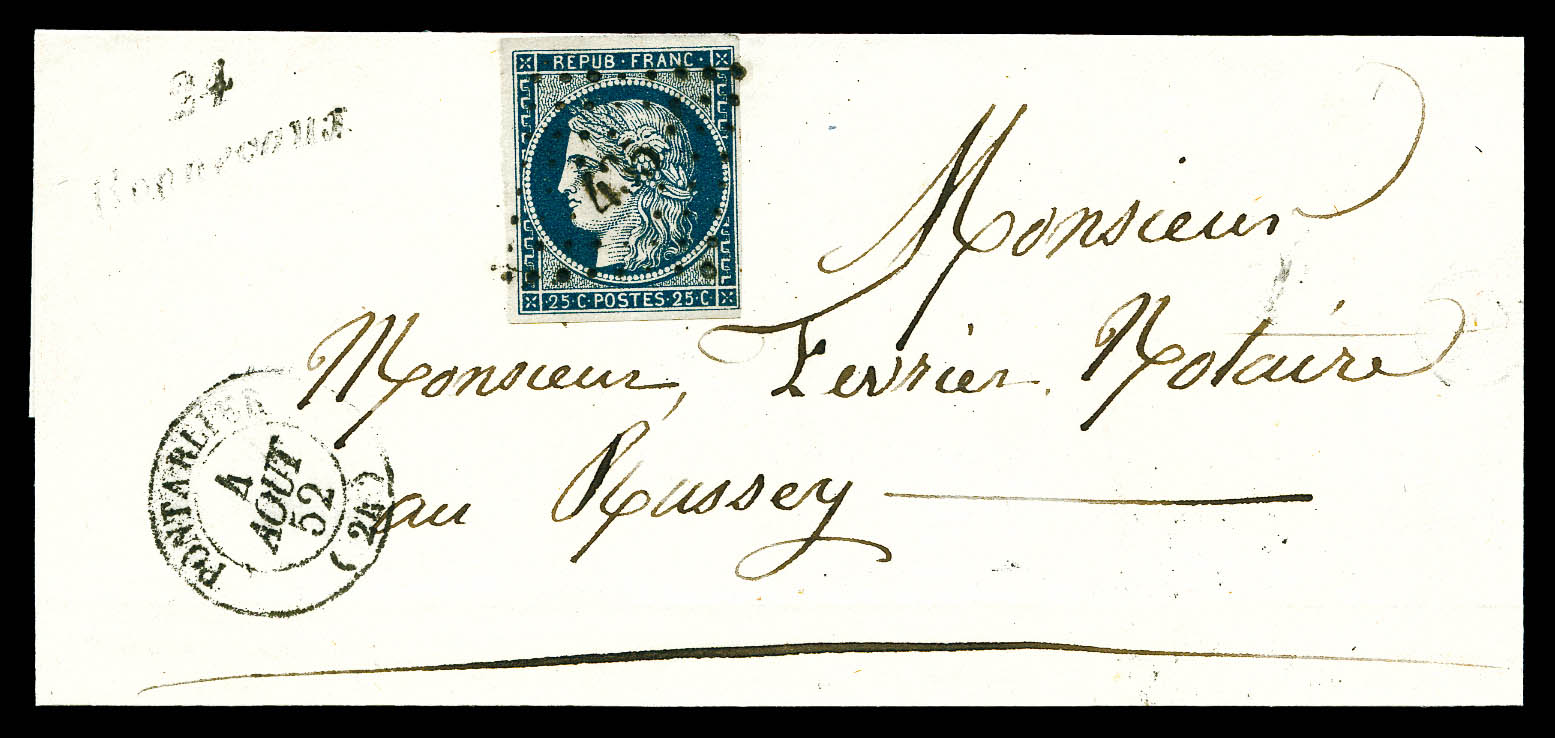 24
REPUB · FRANC ·
425
25 · C · POSTES · 25 · C
Monsieur
Monsieur, Fevrier Notaire
au Russey
PONTARLIER
4
AOUT
52
(24)